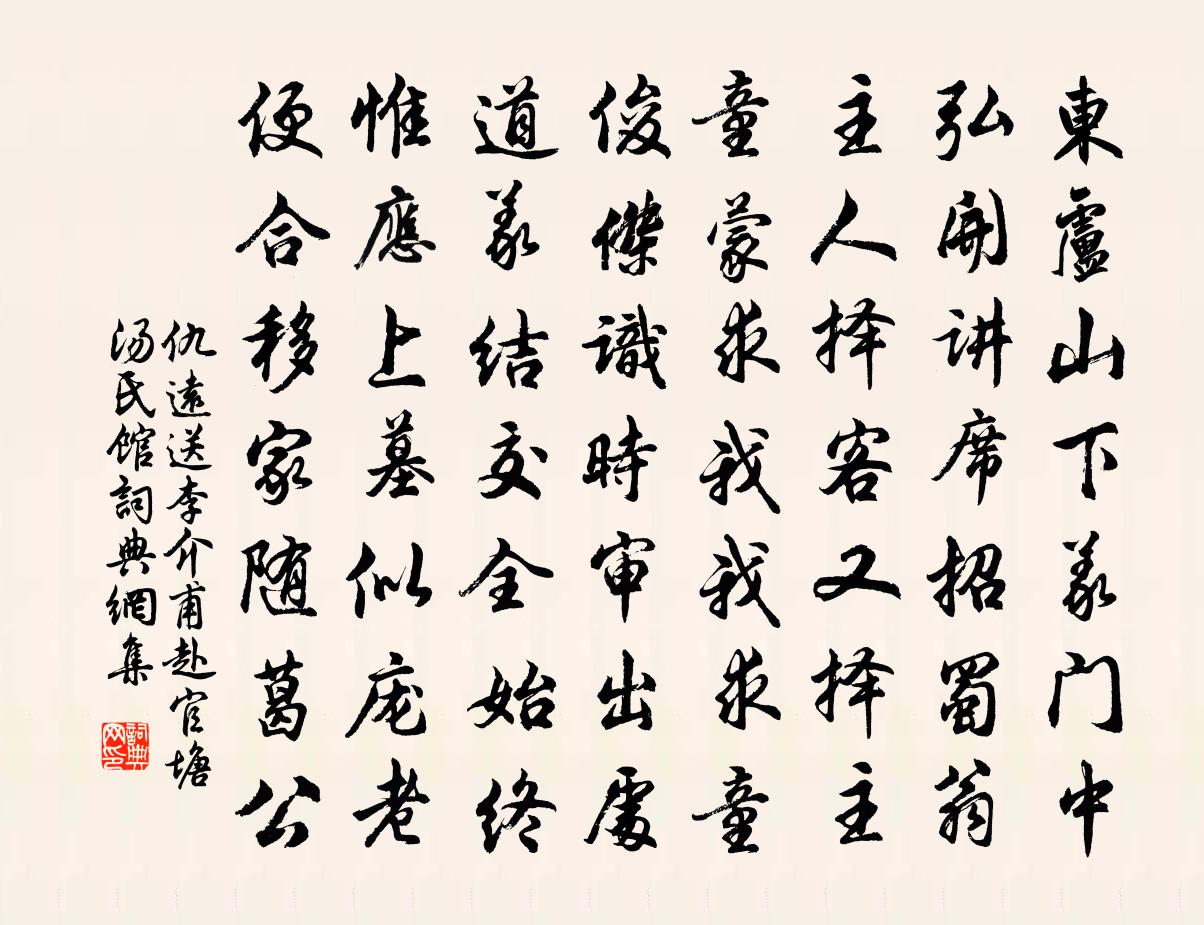 東廬山下義门中
弘開讲席招蜀翁
主人择客又择主
童蒙求我我求童
俊傑識時审出處
道義结交全始终
惟應上墓似庞老
便合移家随葛公
仇遠送李介甫赴官塘
汤氏馆詞典網集
詞典网印